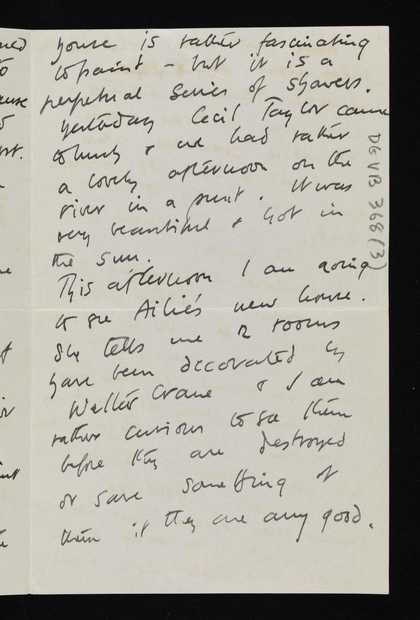 house is rather fascinating
to paint – but it is a
perpetual series of showers.
Yesterday Cecil Taylor came
to lunch & we had rather
a lovely afternoon on the
river in a punt. It was
very beautiful & hot in
the sun.
This afternoon I am going
to see Ailie's new house.
She tells me 2 rooms
have been decorated by
Walter Crane & I am
rather curious to see them
before they are destroyed
or save something of
them if they are any good.
DGVB 368 (3)